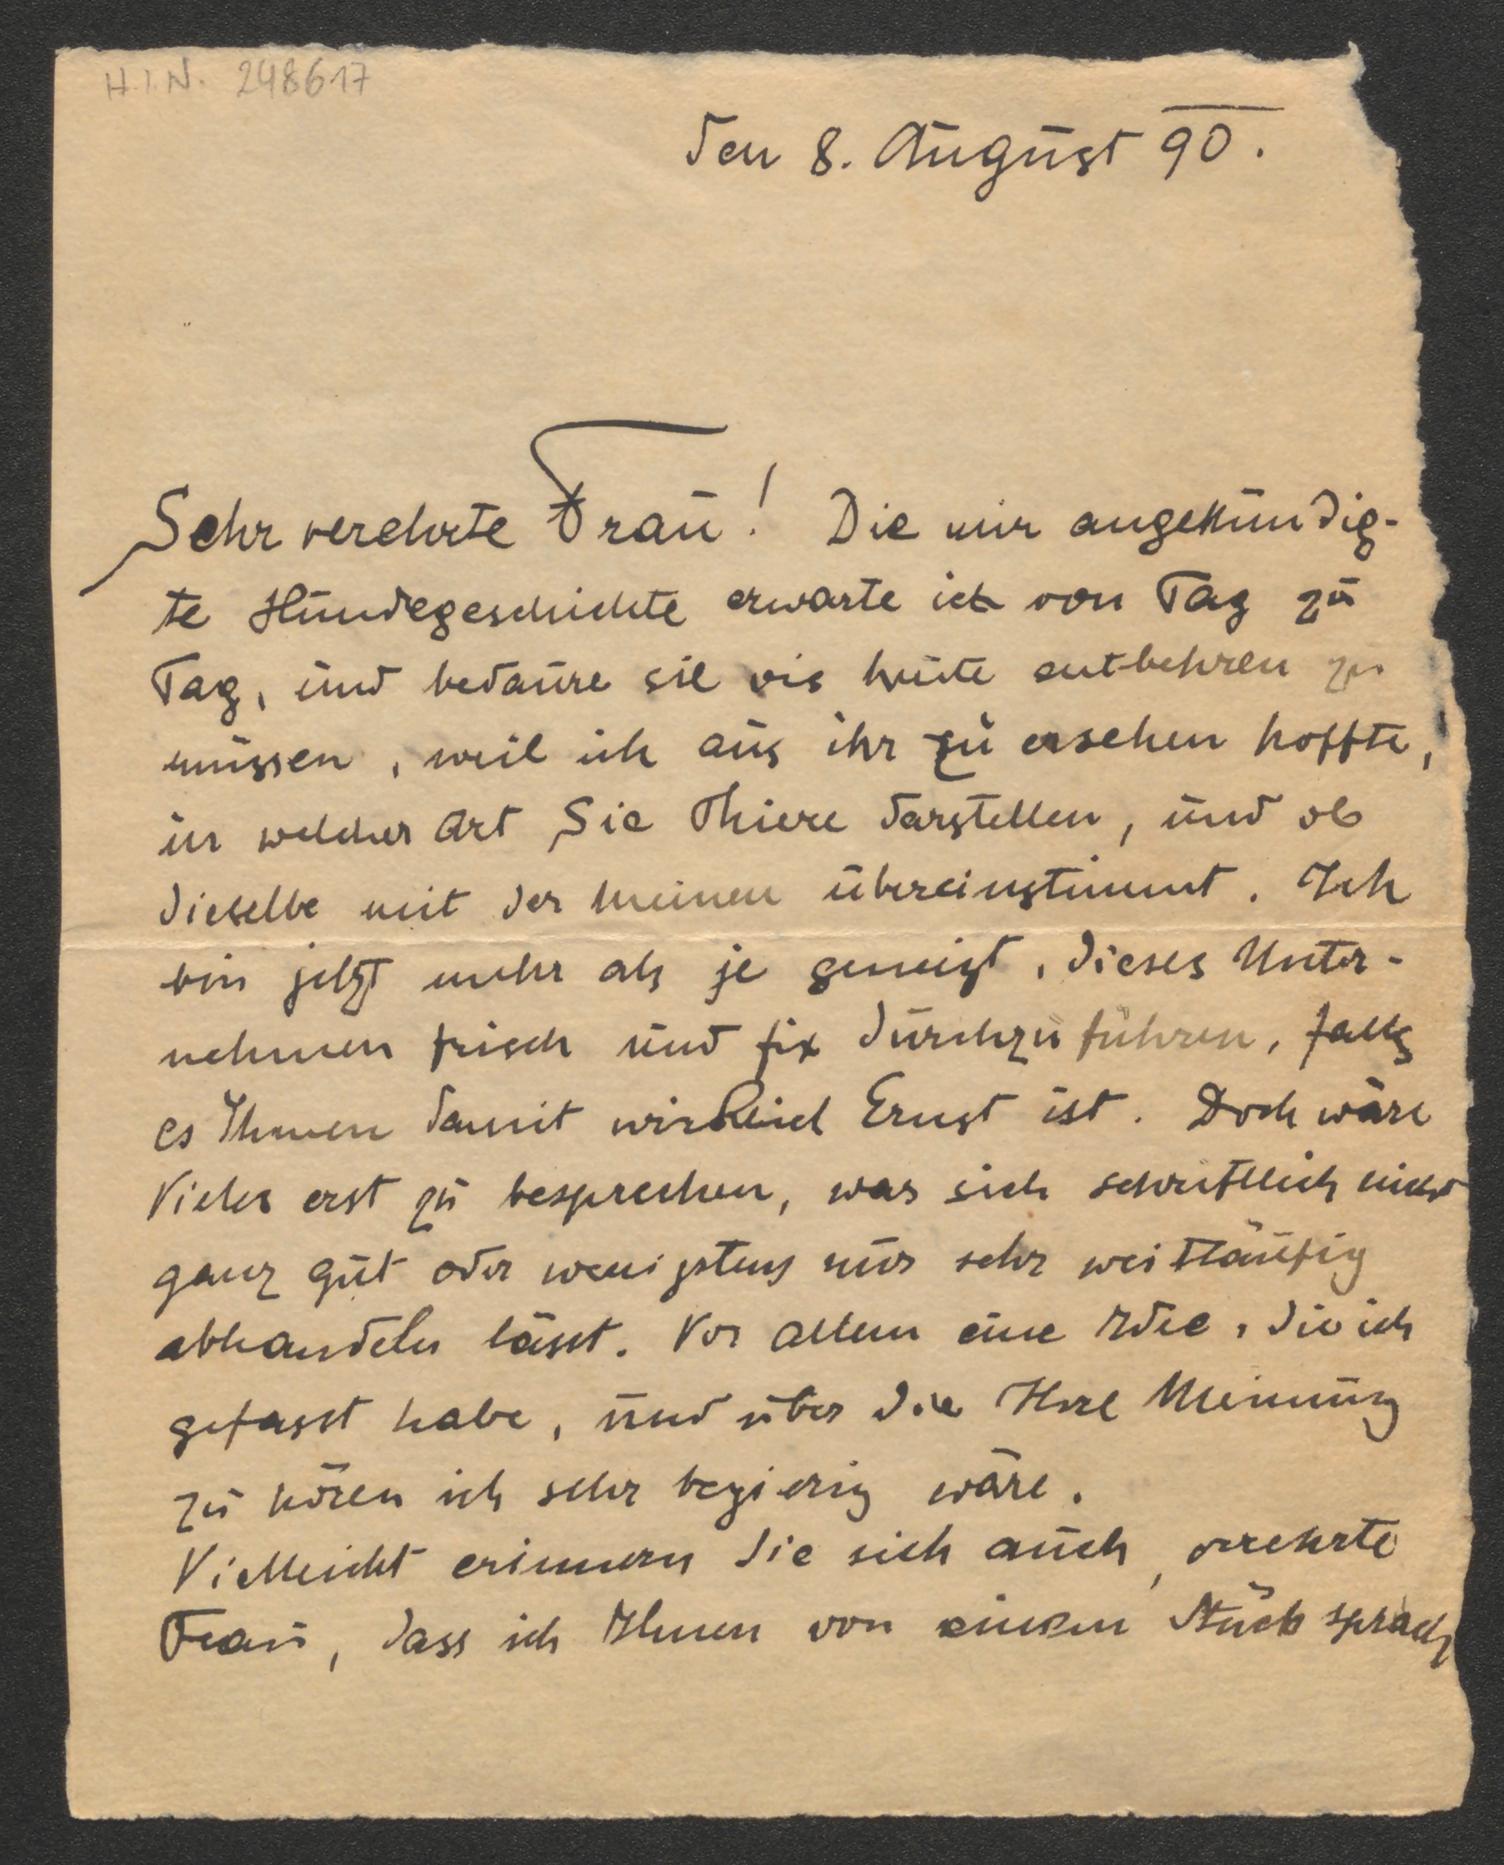 H.I.N. 248617
den 8. August 90.
Sehr verehrte Frau! Die mir angekündig-
te Hundegeschichte erwarte ich von Tag zu
Tag, und bedaure sie bis heute entbehren zu
müssen, weil ich aus ihr zu ersehen hoffte,
in welcher Art Sie Thiere darstellen, und ob
dieselbe mit der meinen übereinstimmt. Ich
bin jetzt mehr als je geneigt, dieses Unter-
nehmen frisch und fix durchzuführen, falls
es Ihnen damit wirklich Ernst ist. Doch wäre
Vieles erst zu besprechen, was sich schriftlich nicht
ganz gut oder wenigstens nur sehr weitläufig
abhandeln lässt. Vor allem eine Idee, die ich
gefasst habe, und über die Ihre Meinung
zu hören ich sehr begierig wäre.
Vielleicht erinnern Sie sich auch, verehrte
Frau, dass ich Ihnen von einem Stück sprach